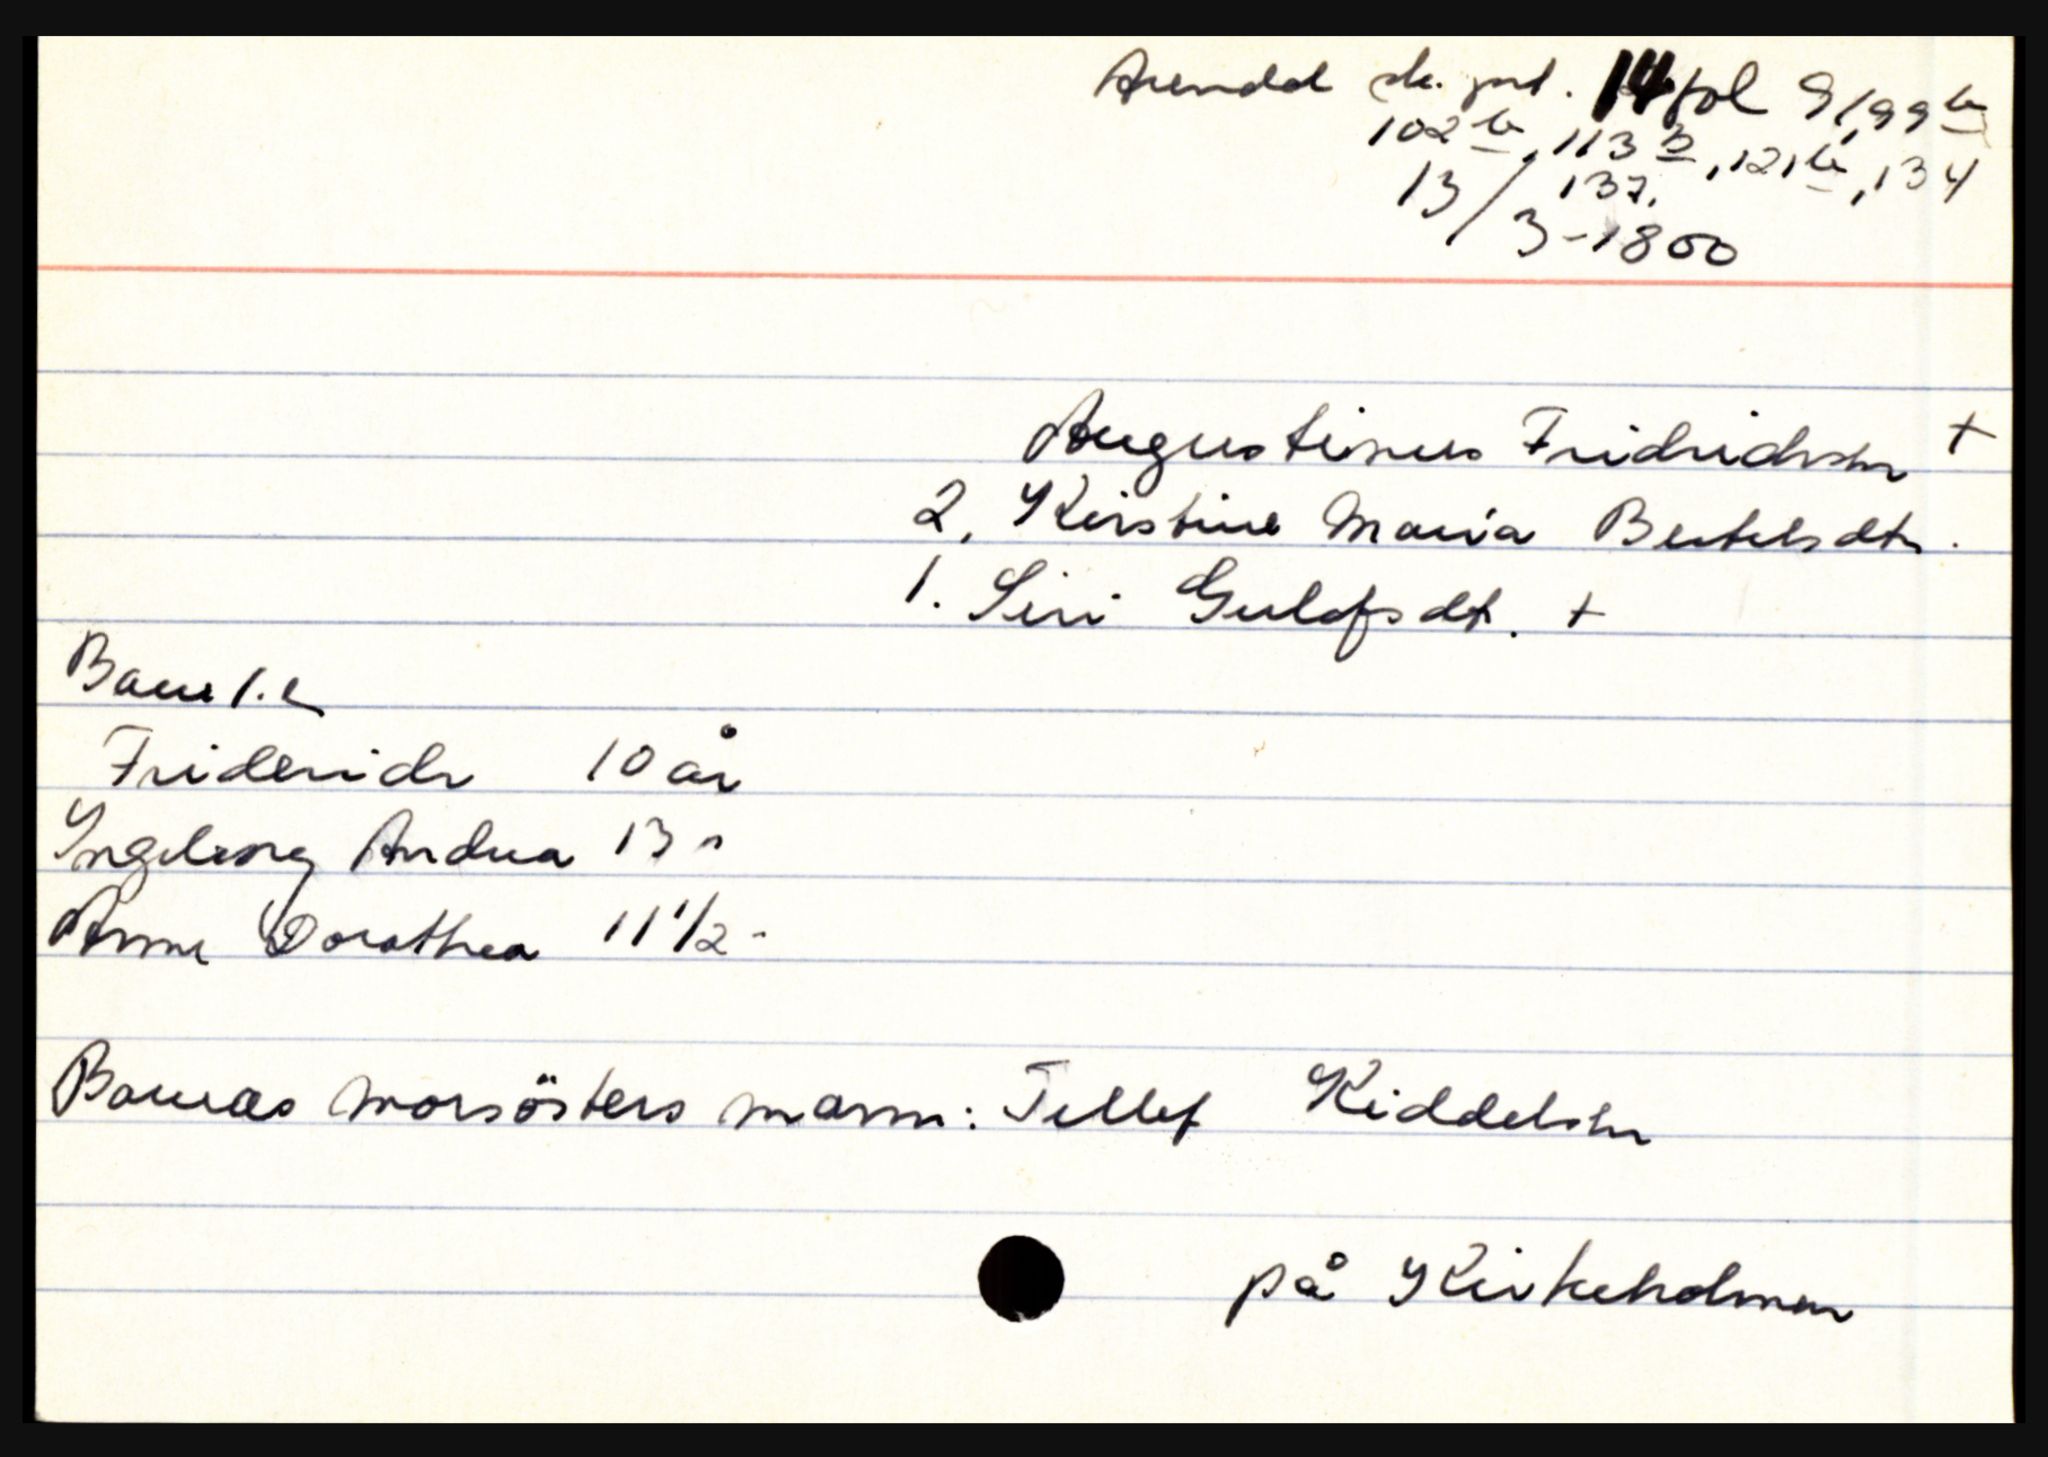 Arendal sk. prt. 14 fol 91, 99 b
102 b, 113 b, 121 b, 134
137.
13/3-1800
Augustinus Fridrichsen +
2. Kirstine Maria Bertelsdtr.
1. Siri Gulofsdt. +
Barn 1.e
Friderich 10 år
Ingeborg Andrea 13 "
Anne Dorothea 11 1/2 -
Barnas morsösters mann: Tellef Kiddelsen
på Kirkeholmen